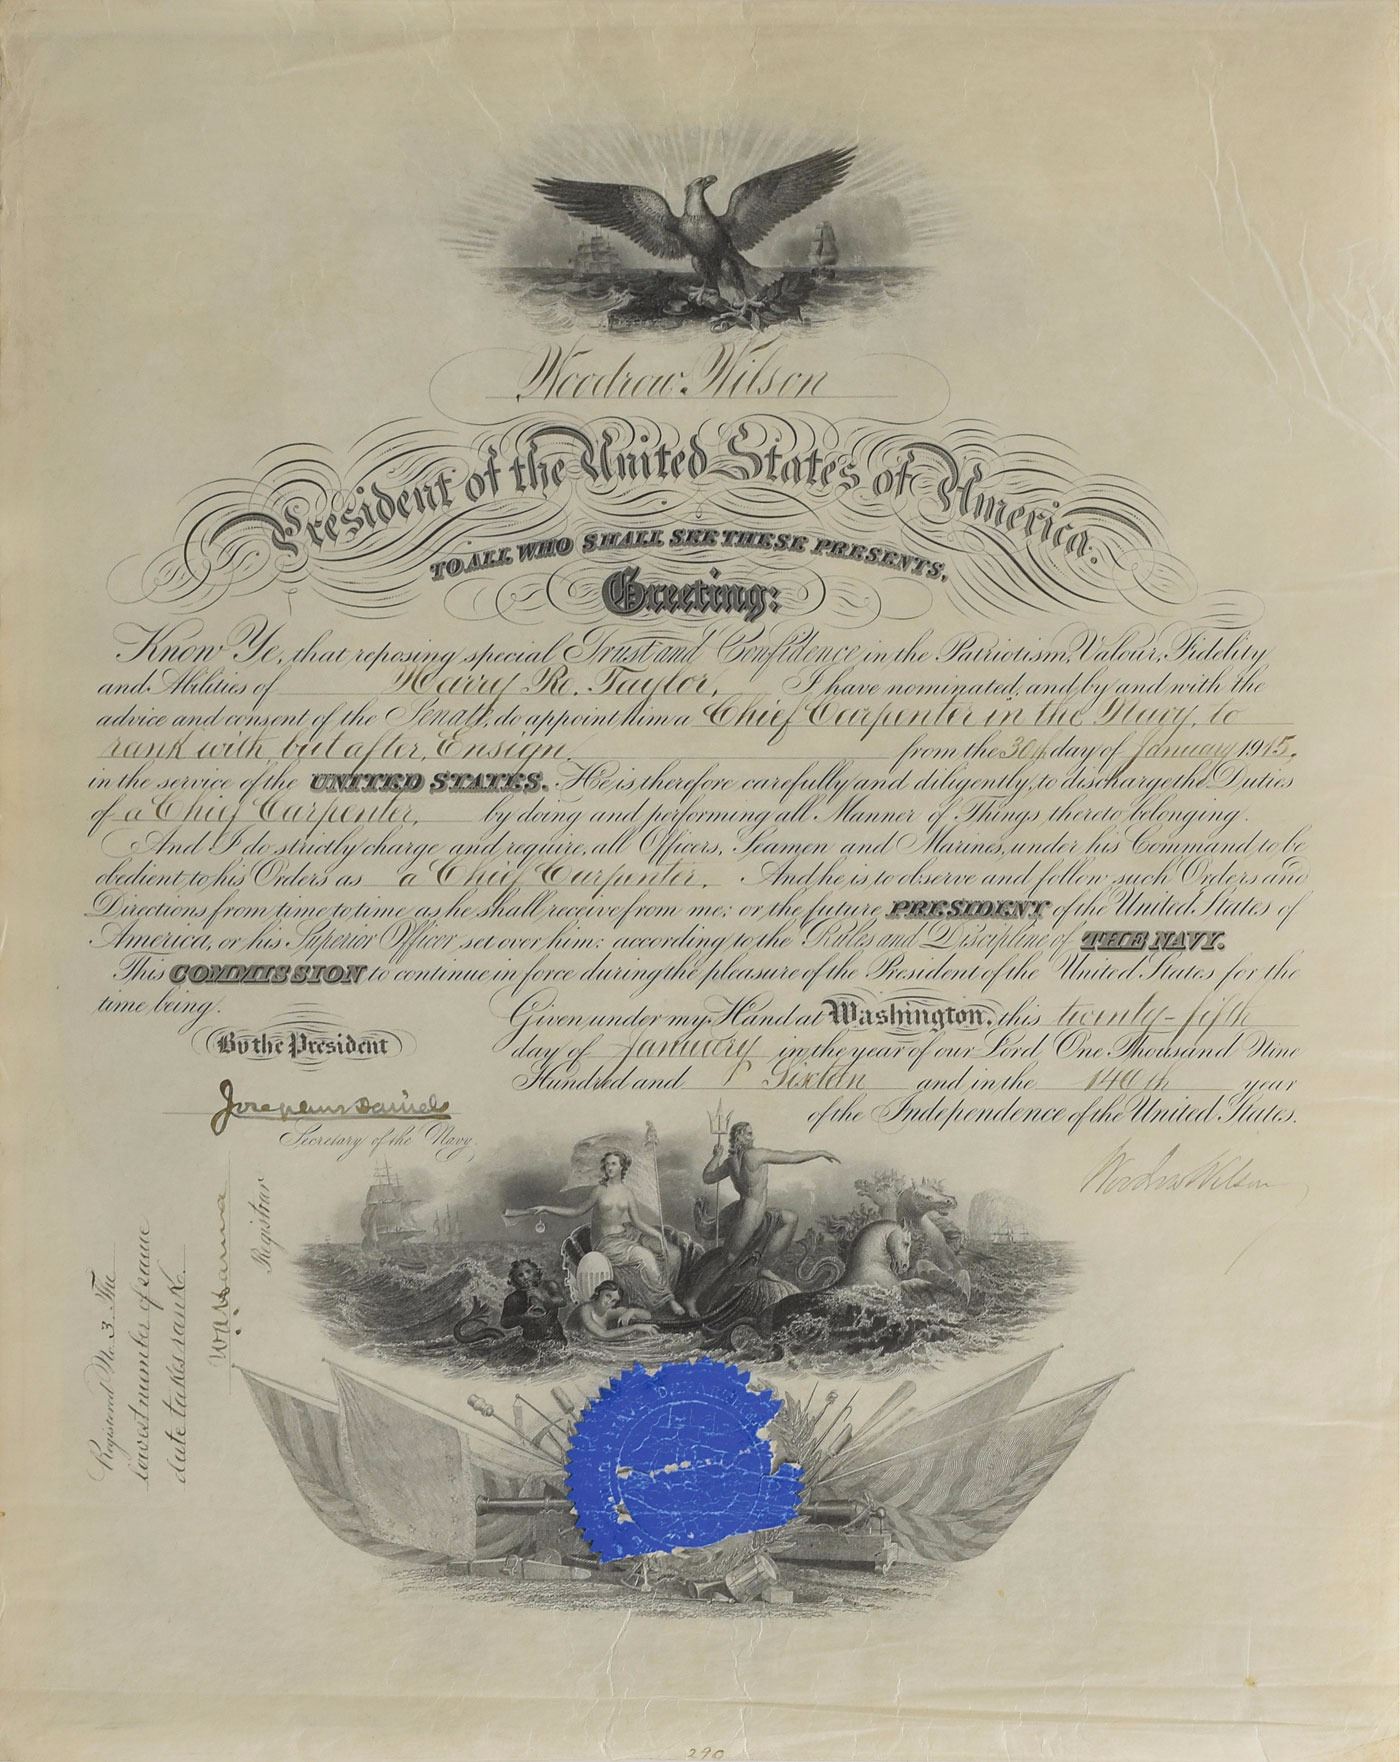 Woodrow Wilson
President of the United States of America.
TO ALL WHO SHALL SEE THESE PRESENTS,
Greeting:
Know Ye, that reposing special Trust and Confidence in the Patriotism, Valour, Fidelity
and Abilities of Harry R. Taylor, I have nominated, and by and with the
advice and consent of the Senate, do appoint him a Chief Carpenter in the Navy, to
rank with, but after, Ensign, from the 30th day of January 1915,
in the service of the UNITED STATES. He is therefore carefully and diligently, to discharge the Duties
of a Chief Carpenter, by doing and performing all Manner of Things thereto belonging.
And I do strictly charge and require, all Officers, Seamen and Marines, under his Command to be
obedient, to his Orders as a Chief Carpenter. And he is to observe and follow such Orders and
Directions from time to time as he shall receive from me; or the future PRESIDENT of the United States of
America, or his Superior Officer set over him; according to the Rules and Discipline of THE NAVY.
This COMMISSION to continue in force during the pleasure of the President of the United States for the
time being.
Given under my Hand at Washington, this twenty-fifth
day of January in the year of our Lord One Thousand Nine
Hundred and Sixteen and in the 140th year
of the Independence of the United States.
By the President
Josephus Daniels
Secretary of the Navy.
Woodrow Wilson
Registered No. 3. The
lowest number of same
date takes rank.
Registrar
290